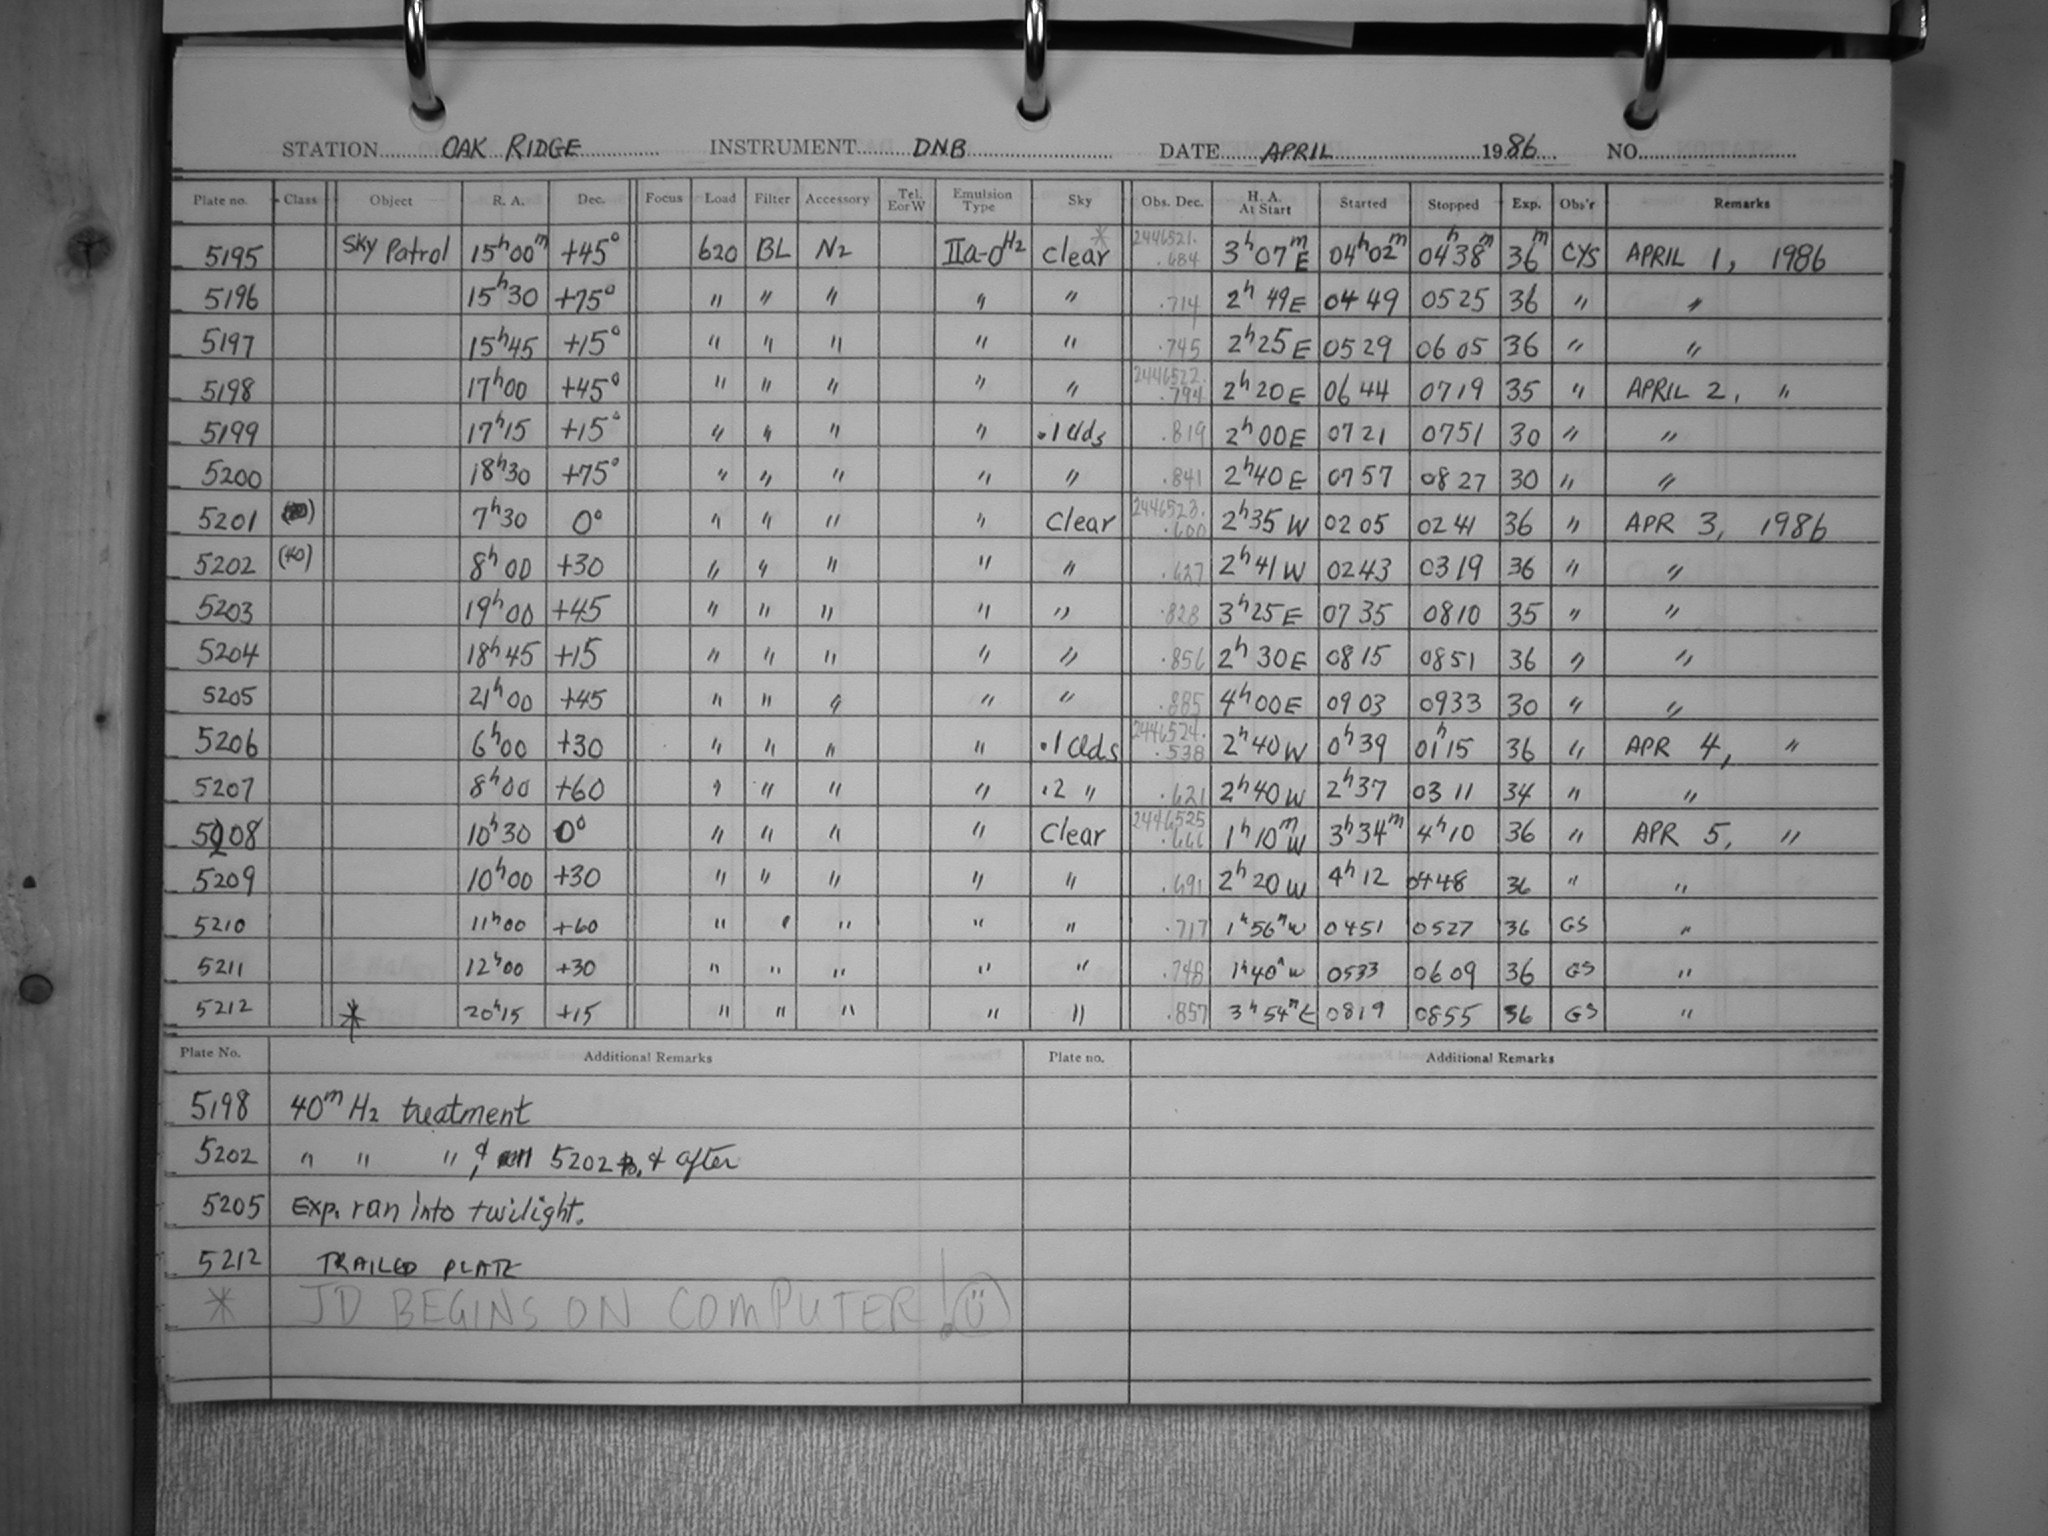 STATION OAK RIDGE INSTRUMENT DNB DATE APRIL 1986 NO.
Plate no. Class Object R. A. Dec. Focus Load Filter Accessory Tel. E or W Emulsion Type Sky Obs. Dec. H. A. At Start Started Stopped Exp. Obs'r Remarks
5195 Sky Patrol 15h00m +45° 620 BL N2 IIa-O H2 clear * 2446521. .684 3h07m E 04h02m 04h38m 36m CYS APRIL 1, 1986
5196 15h30 +75° " " " " " .714 2h49E 0449 0525 36 " "
5197 15h45 +15° " " " " " .745 2h25E 0529 0605 36 " "
5198 17h00 +45° " " " " " 2446522. .794 2h20E 0644 0719 35 " APRIL 2, "
5199 17h15 +15° " " " " .1 clds .819 2h00E 0721 0751 30 " "
5200 18h30 +75° " " " " " .841 2h40E 0757 0827 30 " "
5201 7h30 0° " " " " Clear 2446523. .600 2h35W 0205 0241 36 " APR 3, 1986
5202 (40) 8h00 +30 " " " " " .627 2h41W 0243 0319 36 " "
5203 19h00 +45 " " " " " .828 3h25E 0735 0810 35 " "
5204 18h45 +15 " " " " " .856 2h30E 0815 0851 36 " "
5205 21h00 +45 " " " " " .885 4h00E 0903 0933 30 " "
5206 6h00 +30 " " " " .1 Clds 2446524. .538 2h40W 0h39 01h15 36 " APR 4, "
5207 8h00 +60 " " " " .2 " .621 2h40W 2h37 0311 34 " "
5208 10h30 0° " " " " Clear 2446525 .666 1h10m W 3h34m 4h10 36 " APR 5, "
5209 10h00 +30 " " " " " .691 2h20W 4h12 0448 36 " "
5210 11h00 +60 " " " " " .717 1h56m W 0451 0527 36 GS "
5211 12h00 +30 " " " " " .748 1h40m W 0533 0609 36 GS "
5212 * 20h15 +15 " " " " " .857 3h54m E 0819 0855 36 GS "
Plate No. Additional Remarks Plate no. Additional Remarks
5198 40m H2 treatment
5202 " " " , & 5202 & after
5205 Exp. ran into twilight.
5212 TRAILED PLATE
* JD BEGINS ON COMPUTER!